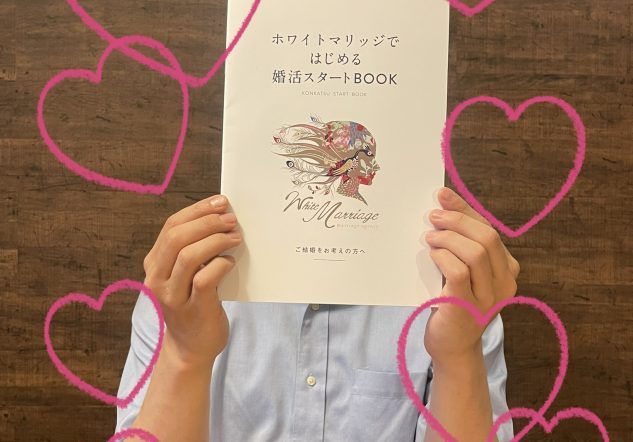 ホワイトマリッジで
はじめる
婚活スタートBOOK
KONKATSU START BOOK
White Marriage
marriage agency
ご結婚をお考えの方へ